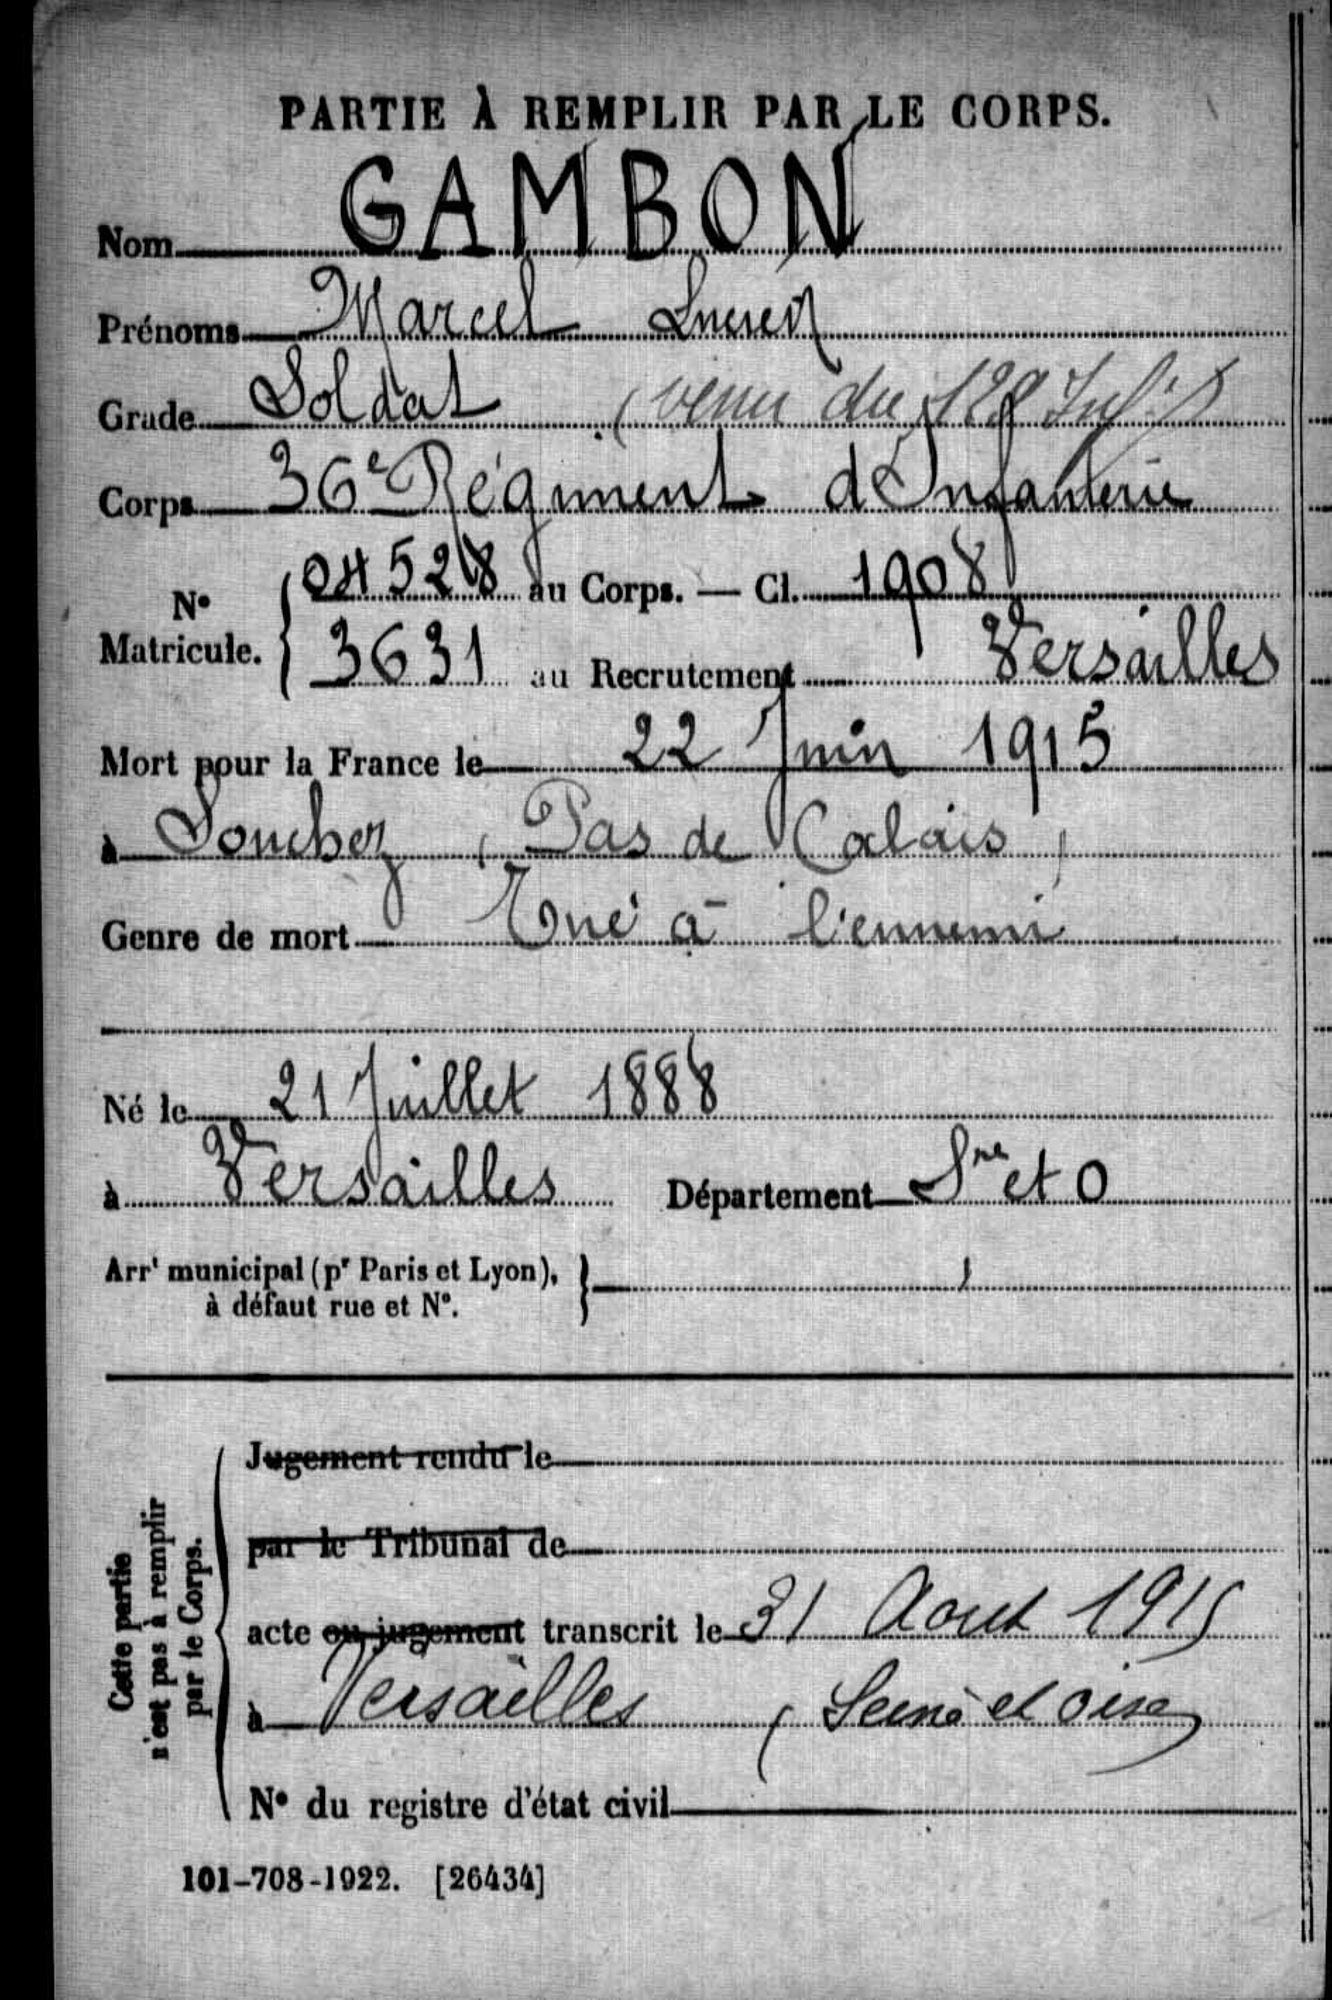 PARTIE À REMPLIR PAR LE CORPS.
Nom GAMBON
Prénoms Marcel Lucien
Grade Soldat (venu du
Corps 36e Régiment d'Infanterie
N° Matricule. { 04528 au Corps. — Cl. 1908
3631 au Recrutement Versailles
Mort pour la France le 22 Juin 1915
à Souchez (Pas de Calais)
Genre de mort Tué à l'ennemi
Né le 21 Juillet 1888
à Versailles Département Sne et O
Arrt municipal (pr Paris et Lyon), }
à défaut rue et N°.
Cette partie
n'est pas à remplir
par le Corps.
Jugement rendu le
par le Tribunal de
acte ou jugement transcrit le 31 Aout 1915
à Versailles (Seine et Oise
N° du registre d'état civil
101-708-1922. [26434]